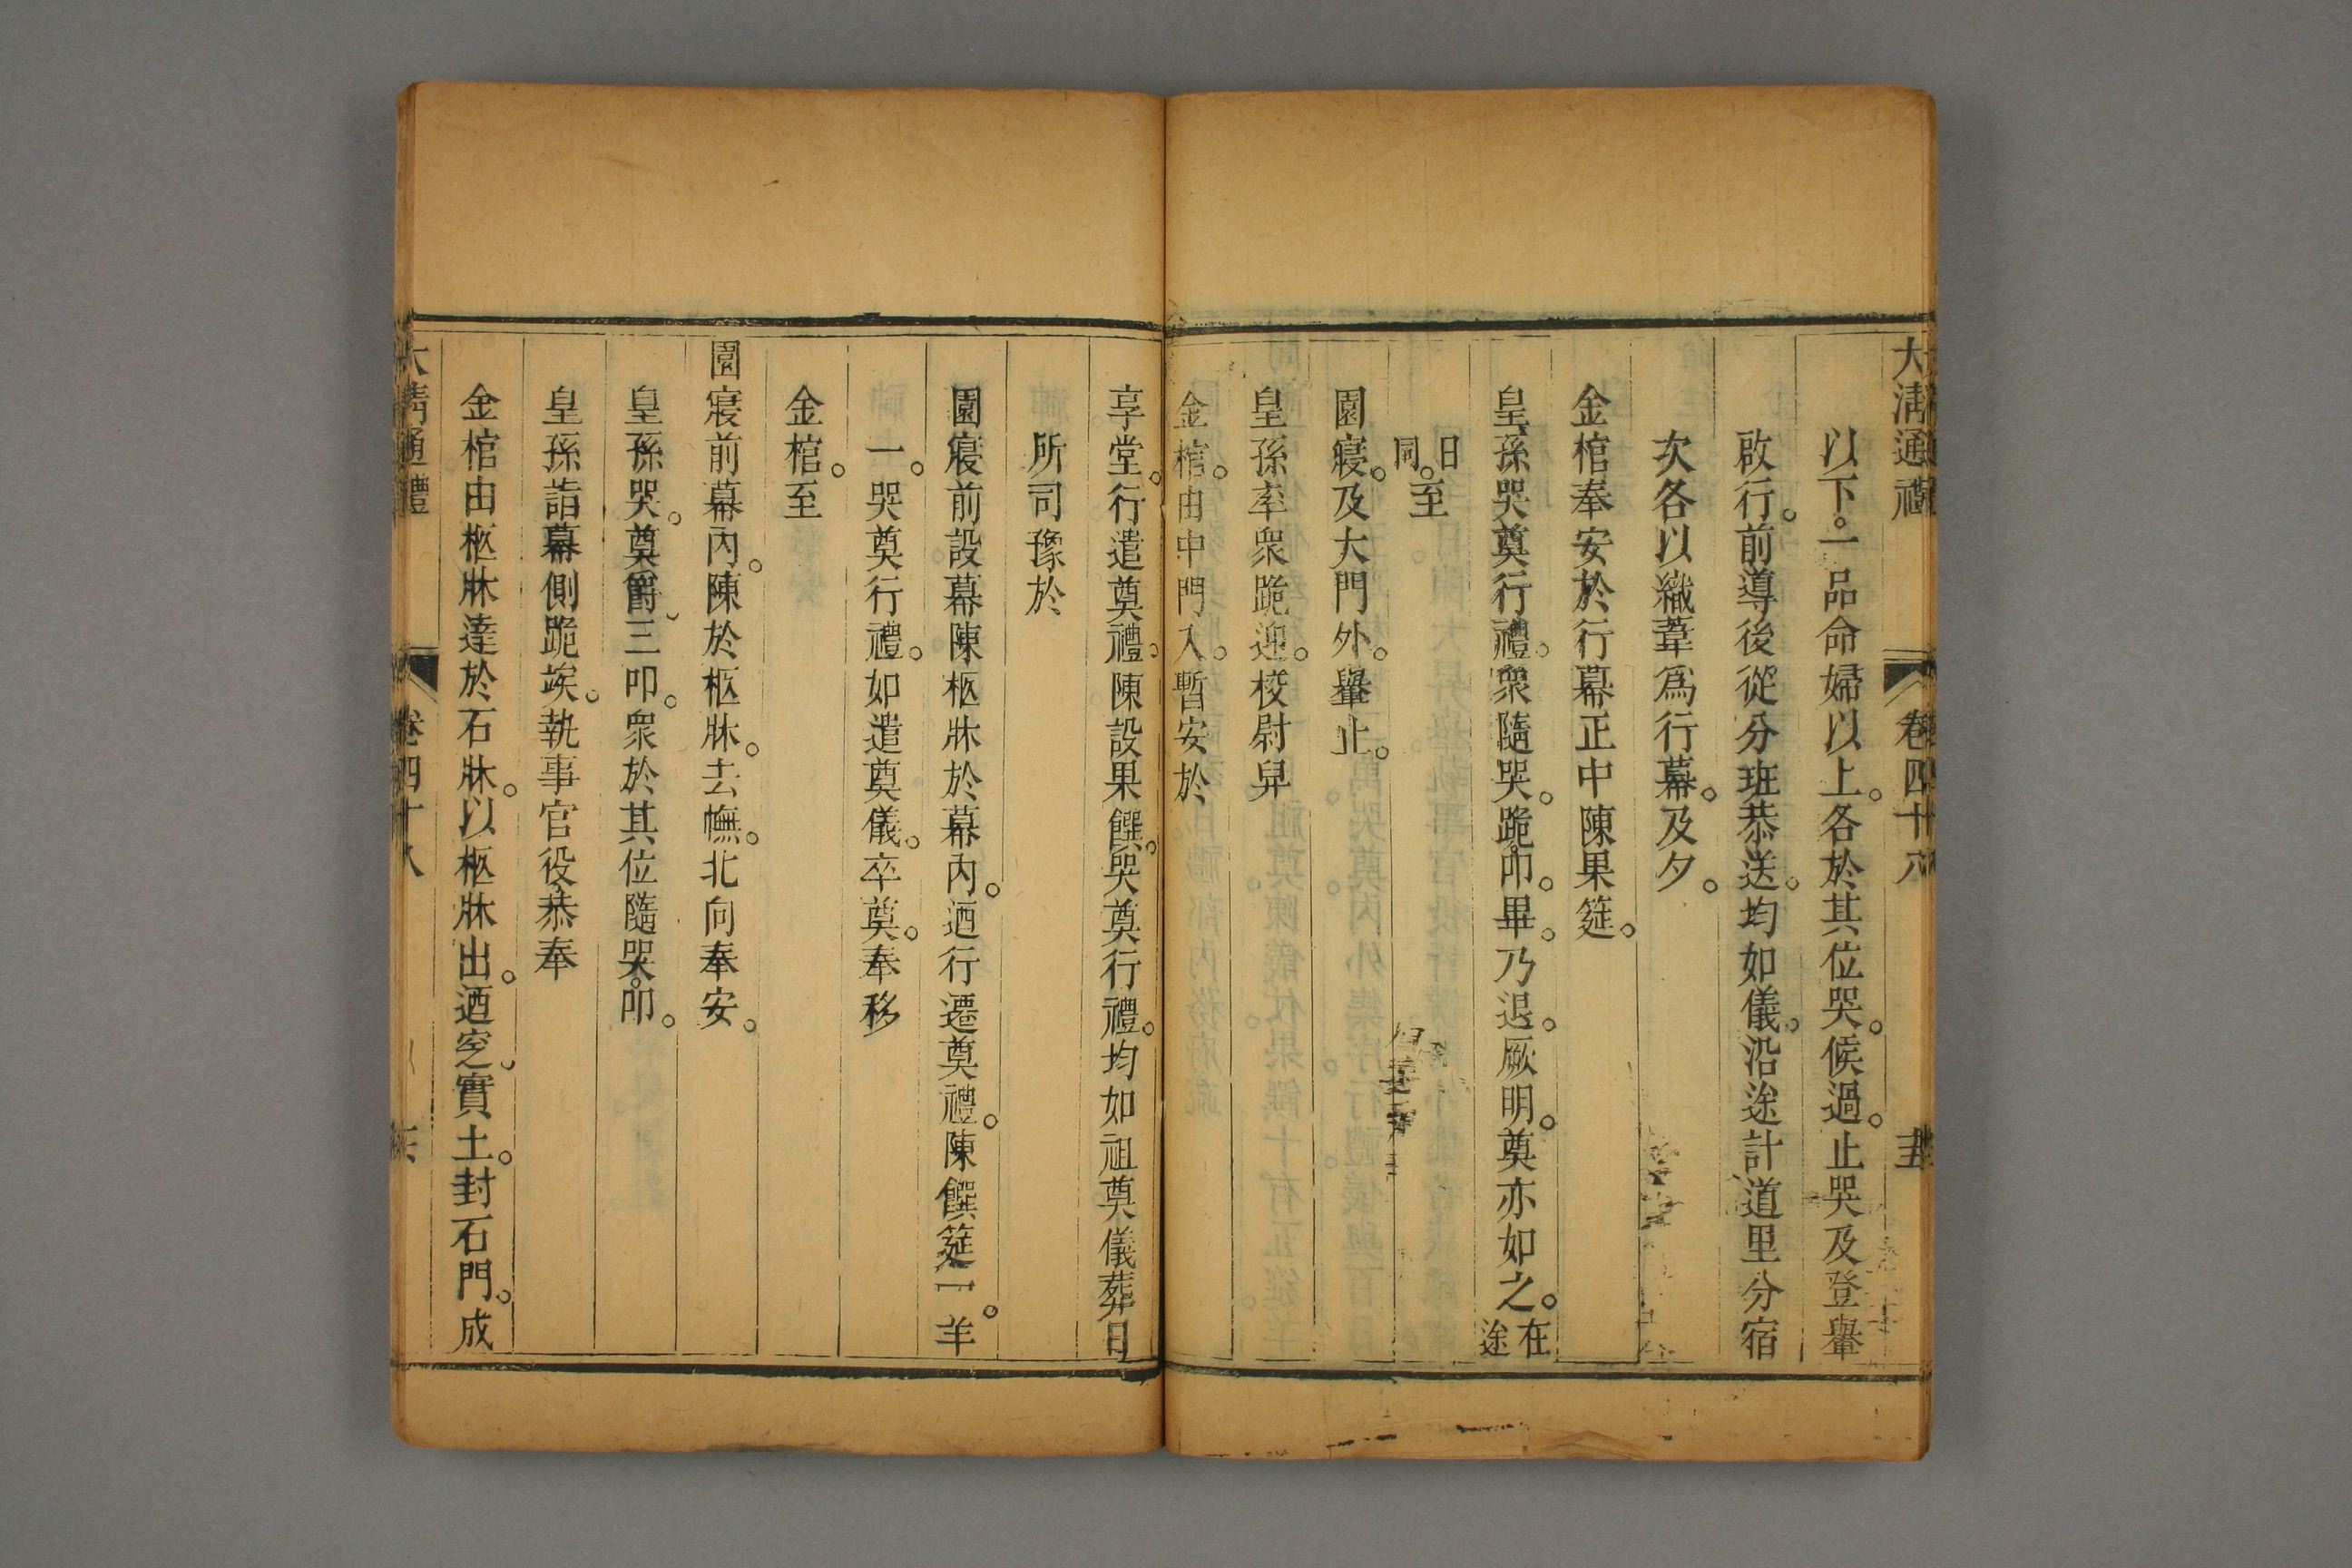 大清通禮 卷四十八 十五
以下。一品命婦以上。各於其位哭。候過。止哭及登轝
啟行。前導後從分班恭送。均如儀。沿途計道里分宿
次各以織葦爲行幕。及夕。
金棺奉安於行幕正中陳果筵。
皇孫哭奠行禮。衆隨哭。跪。叩。畢。乃退。厥明。奠亦如之。在途
日同。至
園寢。及大門外。轝止。
皇孫率衆跪迎。校尉舁
金棺。由中門入。暫安於
享堂。行遣奠禮。陳設果饌。哭奠行禮。均如祖奠儀葬日
所司豫於
園寢前設幕陳柩牀於幕內。迺行遷奠禮。陳饌筵一。羊
一。哭奠行禮。如遣奠儀。卒奠。奉移
金棺。至
園寢前幕內。陳於柩牀。去幠。北向奉安。
皇孫哭。奠爵。三叩。衆於其位隨哭。叩。
皇孫詣幕側跪竢。執事官役恭奉
金棺由柩牀達於石牀。以柩牀出。迺窆。實土。封石門。成
大清通禮 卷四十八